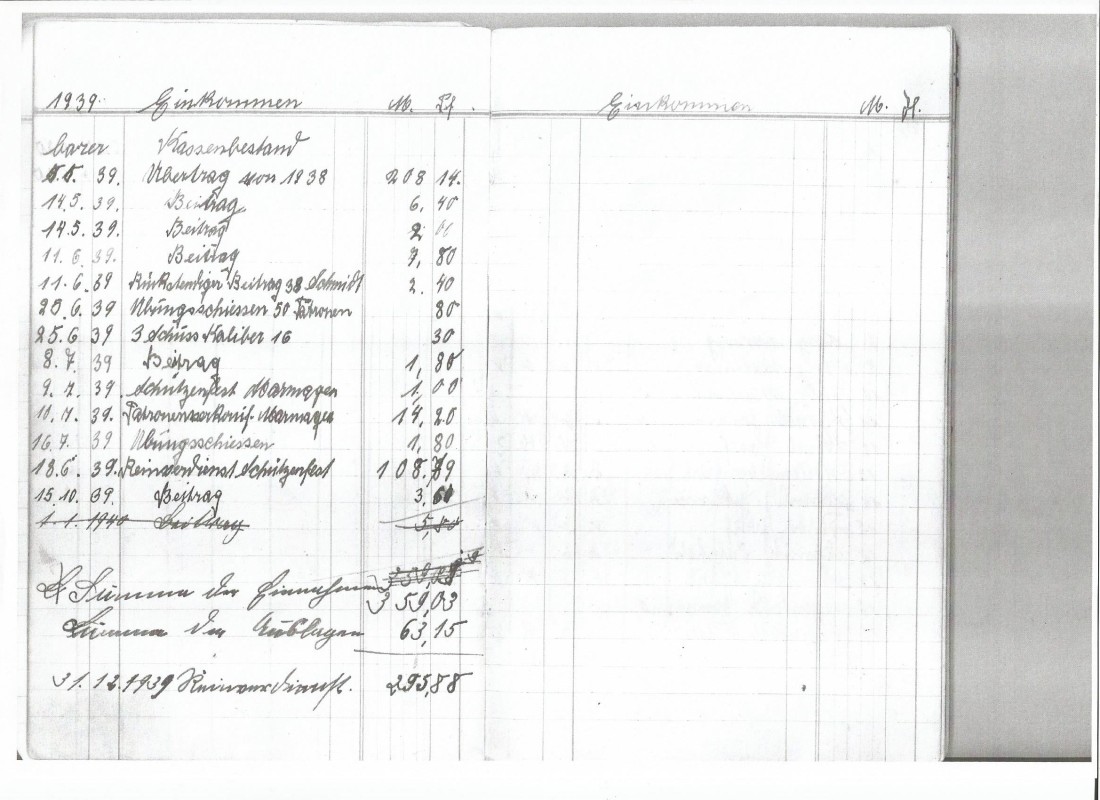 1939. Einkommen M. Pf.
barer Kassenbestand
39. Übertrag von 1938 208 14.
14.5. 39. Beitrag 6, 40
14.5. 39. Beitrag 2
11.6 39. Beitrag 7, 80
11.6. 39 Rückstendiger Beitrag 38 Schmidt 2. 40
25.6. 39 Übungsschiessen 50 Patronen 80
25.6 39 3 Schuss Kaliber 16 30
8.7. 39 Beitrag 1, 80
9.7. 39. Schützenfest Marmagen 1, 00
10.7. 39. Marmagen 14, 20
16.7. 39 Übungsschiessen 1, 80
18.6. 39. Reinverdienst Schützenfest 108, 9
15.10. 39. Beitrag 3,
1.1. 1940 Beitrag
Summa der Einnahmen 359,03
Summa der Auslagen 63,15
31.12.1939 Reinverdienst. 295,88
Einkommen M. Pf.